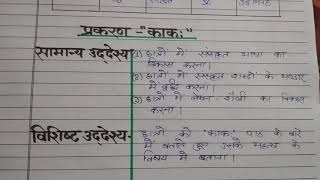 प्रकरण -"काकः"
सामान्य उद्देश्य (1) छात्रों में संस्कृत भाषा का
विकास करना।
(2) छात्रों में संस्कृत शब्दों के भण्डार
में वृद्धि करना।
(3) छात्रों में लेखन-शैली का विकास
करना।
विशिष्ट उद्देश्य- छात्रों को "काकः" पाठ के बारे
में बताते हुए उसके महत्व के
विषय में बताना।